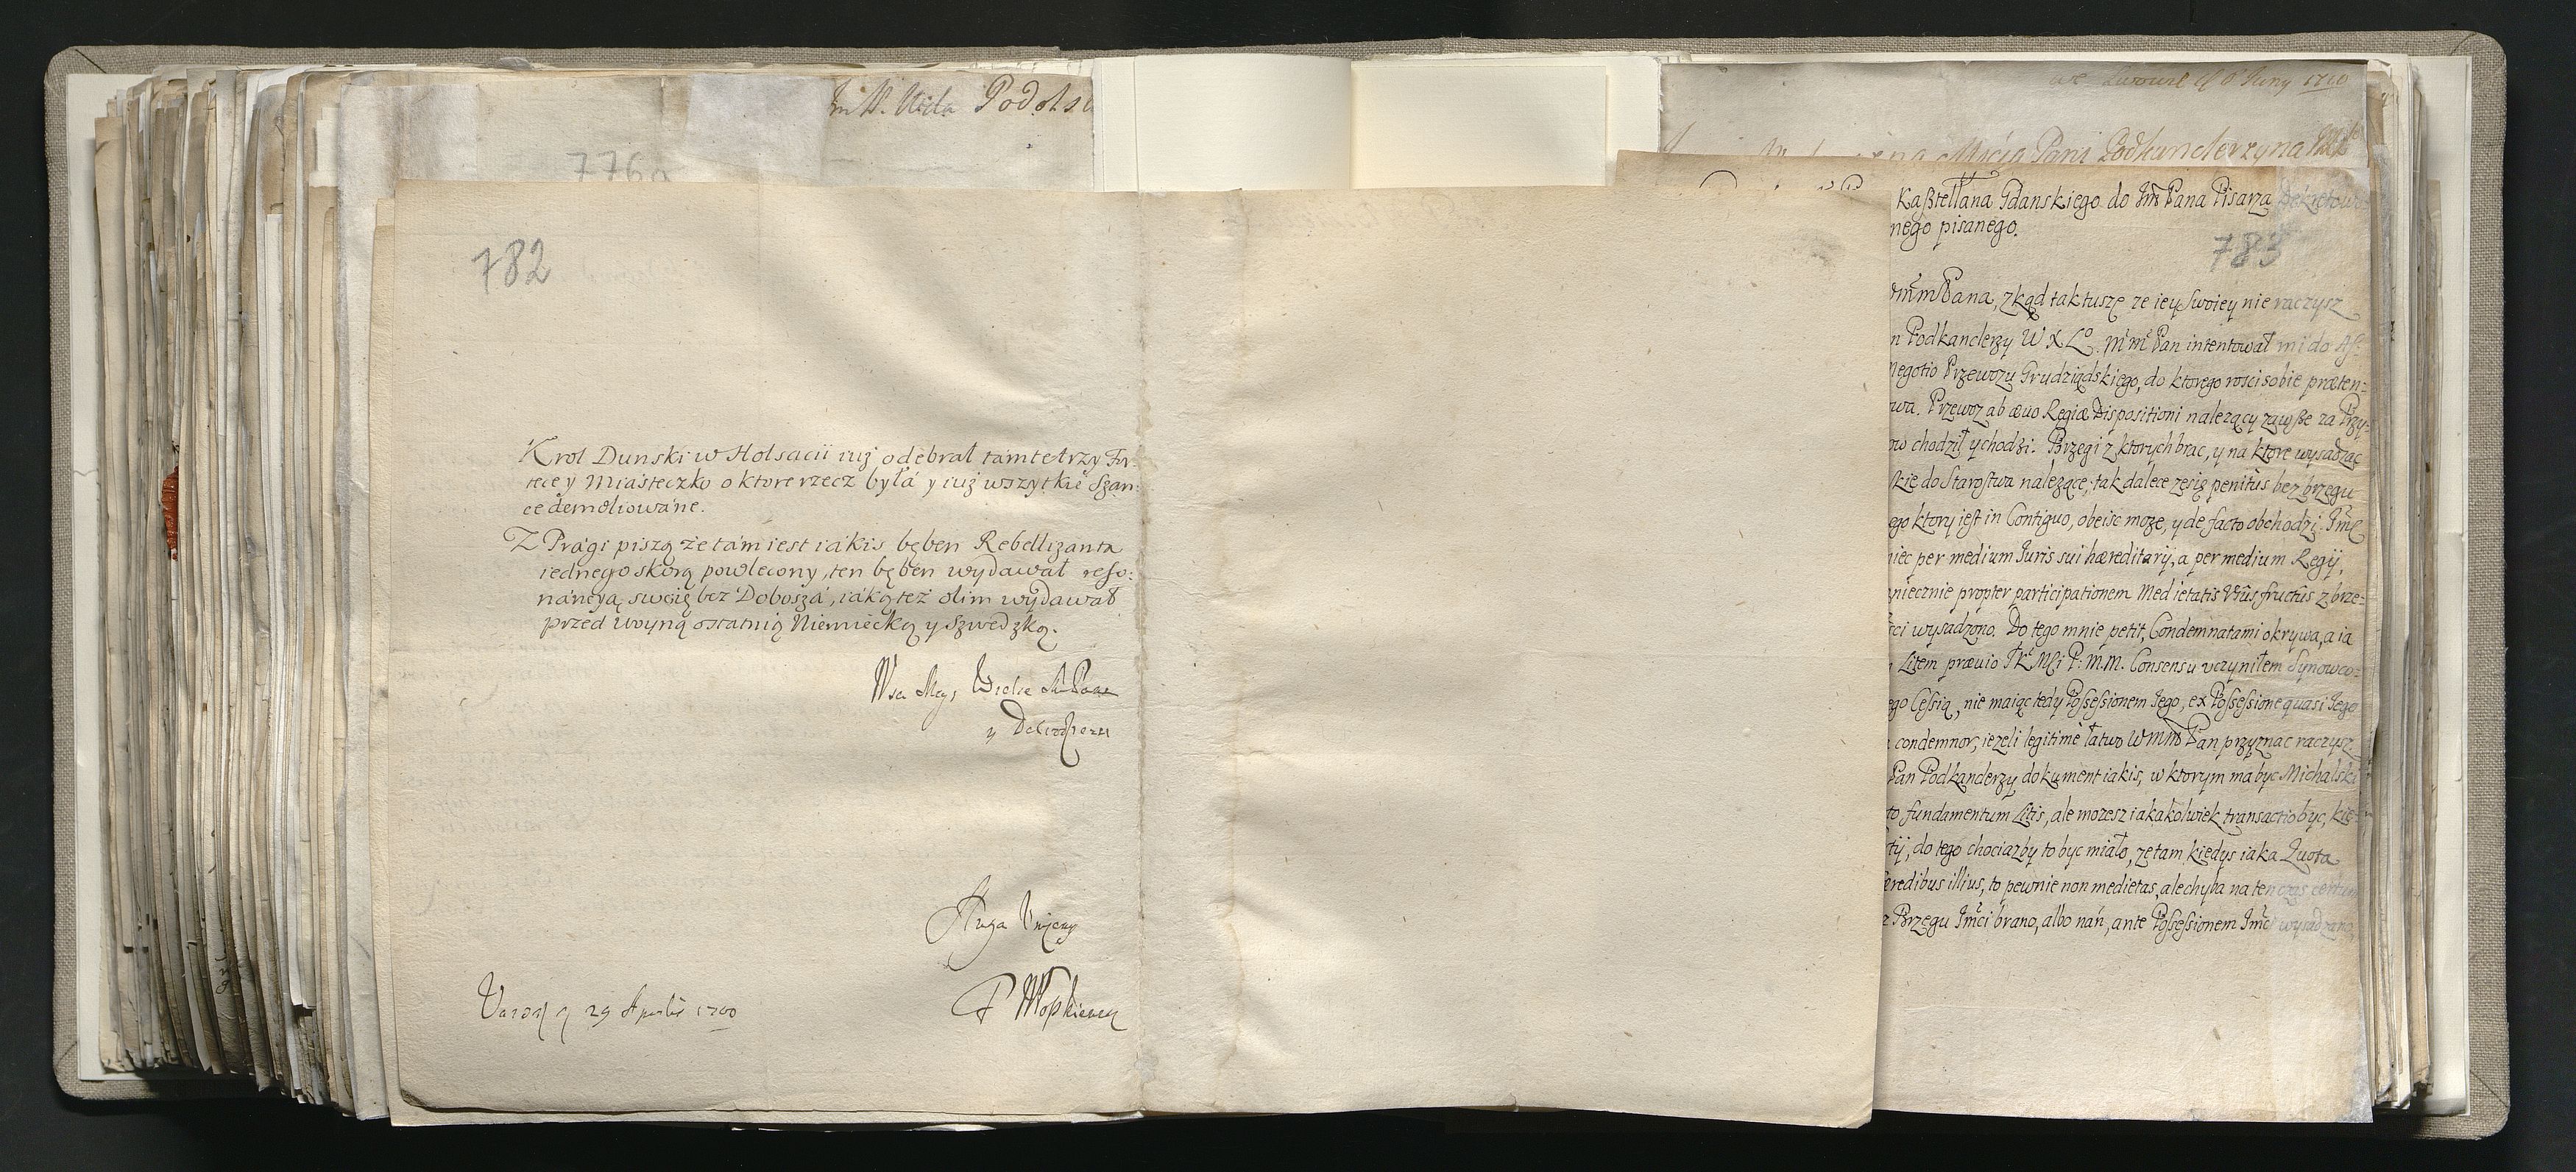 Podols
we Lwowie 1710
Pani Podkanclerzyna
776a
782
Krol Dunski w Holsacii iuż odebrał tamte trzy For:
tece y Miasteczko o ktore rzecz była y iuż wszytkie Szan:
ce demoliowane.
Z Pragi piszą że tam iest iakis bęben Rebellizanta
iednego skorą powlecony, ten bęben wydawał reso:
nancyą swoię bez Dobosza, iaką też olim wydawał
przed woyną ostatnią Niemiecką y Szwedzką.
Wielce
y
Sługa
29 Aprilis 1700
Kasztellana Gdanskiego do Jm Pana Pisarza Dekretowe
nego pisanego.
783
Pana, zkąd tak tuszę ze iey Swoiey nie raczysz
n Podkanclerzy W X Lo. Pan intentował mi do As:
negotio Przewozu Grudziądskiego, do ktorego rosci sobie præten=
wa. Przewoz ab ævo Regiæ Dispositioni nalezący zawsze za Przy:
ow chodził y chodzi. Brzegi z ktorych brac, y na ktore wysadzac
skie do Starostwa nalezące; tak dalece ze się penitus bez brzegu
ego ktory iest in Contiguo, obeisc moze, y de facto obchodzi. Jmc
niec per medium Juris sui hæreditarij, a per medium Regij,
niecznie propter participationem Medietatis Vsus fructus z brze=
sci wysadzono. Do tego mnie petit, Condemnatami okrywa, a ia
Litem prævio JKMci P: M.M. Consensu uczyniłem Synowco=
ego Cessią, nie maiąc tedy Possessionem Jego, ex Possessione quasi Jego
condemnor, iezeli legitime łatwo WMM Pan przyznac raczysz
Pan Podkanclerzy dokument iakis, w ktorym ma byc Michalski
to fundamentum Litis, ale mozesz iakakolwiek transactio byc, kie=
tij, do tego chociazby to byc miało, ze tam kiedys iaka Quota
eredibus illius, to pewnie non medietas, ale chyba na ten czas certum
z Brzegu Jmci brano, albo nań, ante Possessionem Jmci wysadzano,